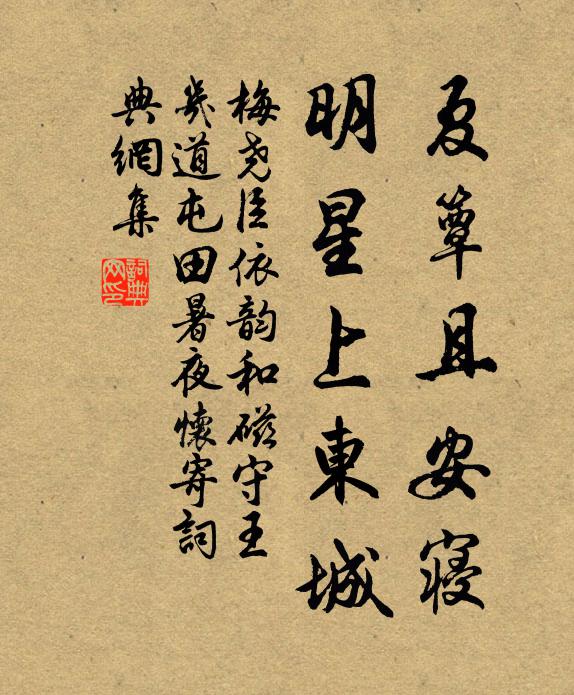 夏簟且安寝
明星上東城
梅尧臣依韵和磁守王
幾道屯田暑夜懷寄詞
典網集
詞典网印